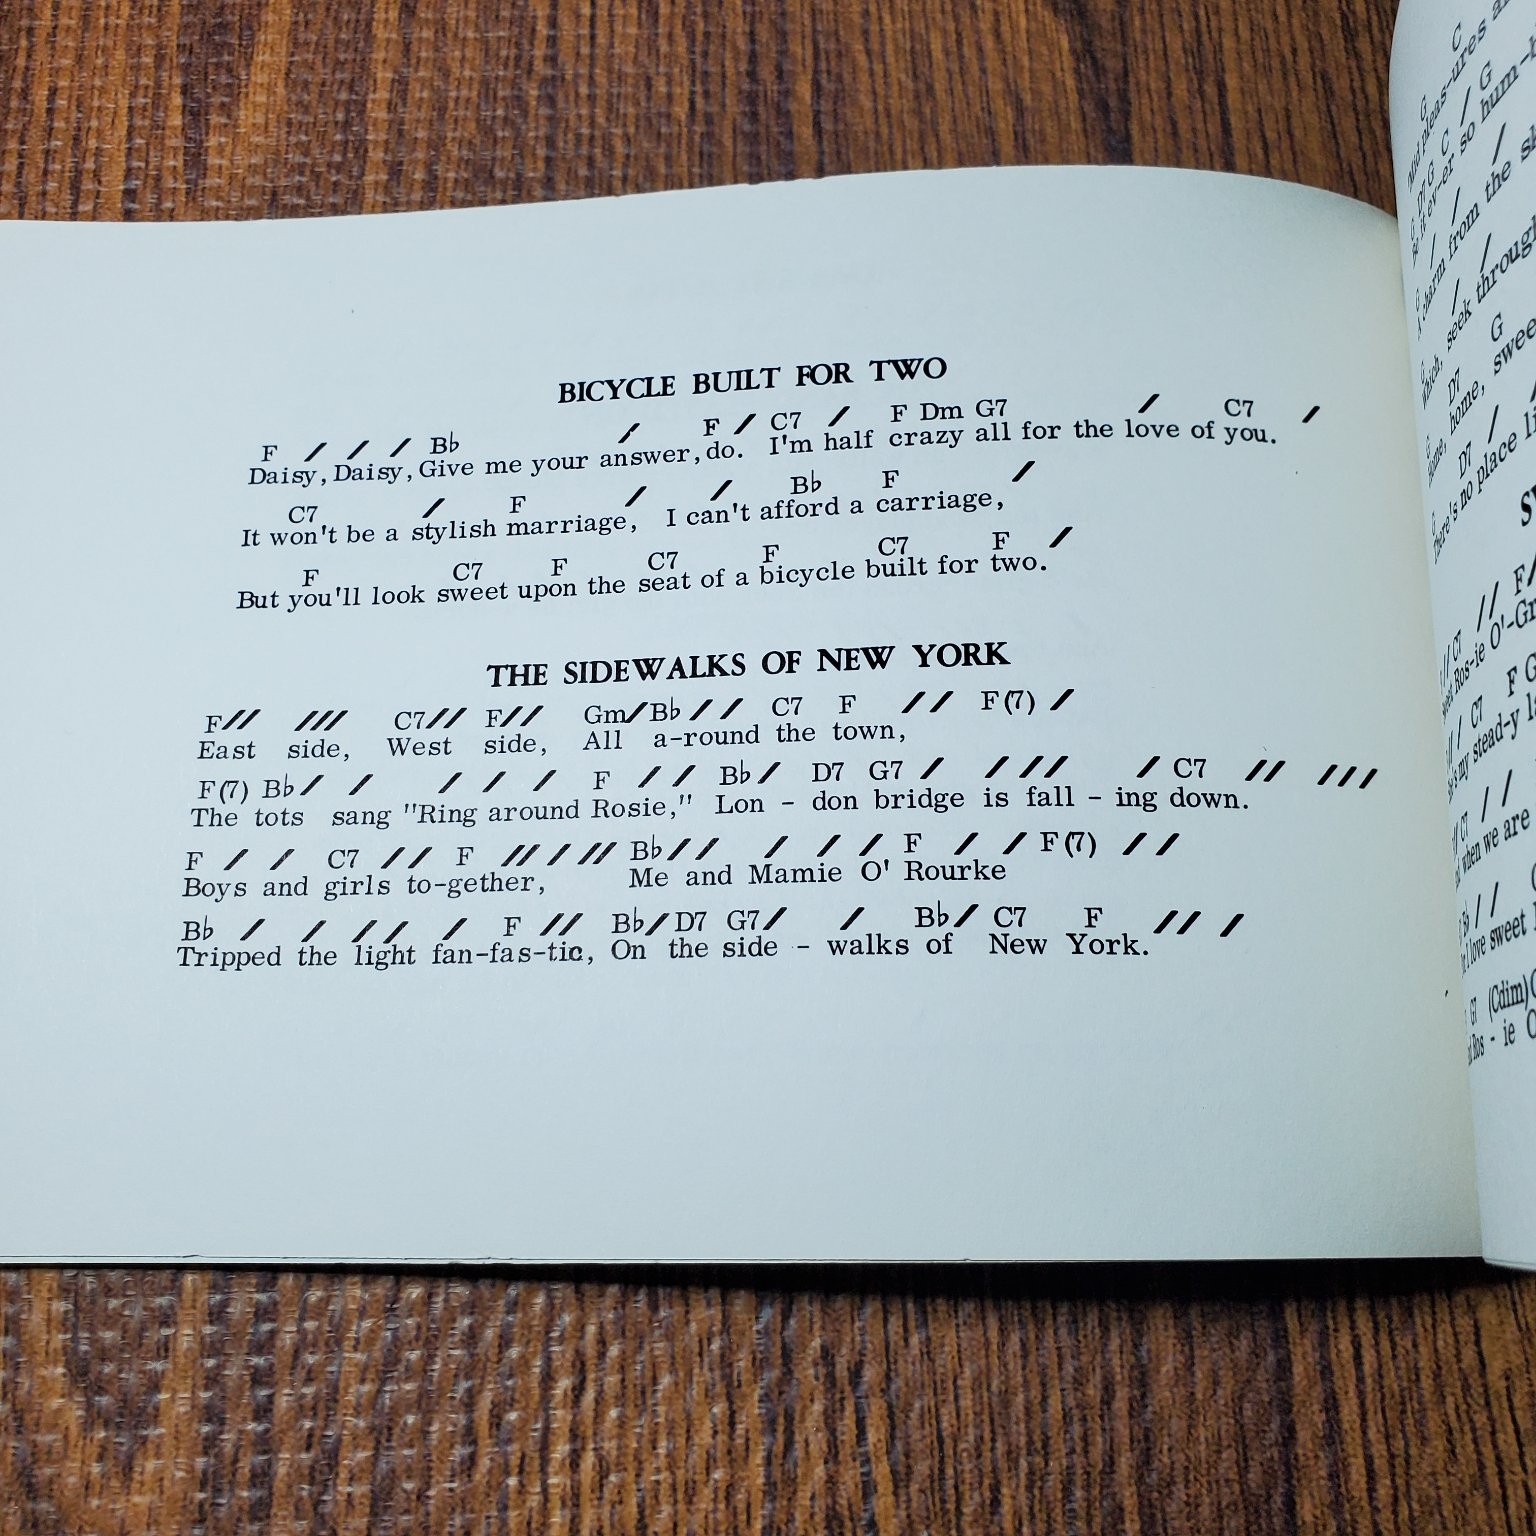 BICYCLE BUILT FOR TWO
F / / / B♭ / F / C7 / F Dm G7 / C7 /
Daisy, Daisy, Give me your answer, do. I'm half crazy all for the love of you.
C7 / F / / B♭ F /
It won't be a stylish marriage, I can't afford a carriage,
F C7 F C7 F C7 F /
But you'll look sweet upon the seat of a bicycle built for two.
THE SIDEWALKS OF NEW YORK
F// /// C7// F// Gm/B♭// C7 F // F(7) /
East side, West side, All a-round the town,
F(7) B♭/ / / / / F / / B♭/ D7 G7 / / // / C7 // ///
The tots sang "Ring around Rosie," Lon - don bridge is fall - ing down.
F / / C7 // F // / // B♭// / / / F / / F(7) / /
Boys and girls to-gether, Me and Mamie O' Rourke
B♭ / / // / F // B♭/ D7 G7/ / B♭/ C7 F // /
Tripped the light fan-fas-tic, On the side - walks of New York.
G C
'Mid pleas-ures
G D7 G C / G
Be it ev-er so hum-b
G / / /
A charm from the
G / /
Which, seek through
G D7 G
Home, home, swee
G D7 /
There's no place li
// C7 // F/
Ros-ie O'-Gr
/ C7 F G
my stead-y la
C7 / /
when we are
B♭ / /
love sweet
G7 (Cdim)
Ros - ie O